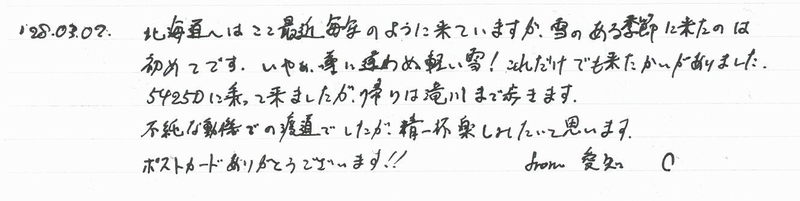 '28.03.02. 北海道へはここ最近毎年のように来ていますが、雪のある季節に来たのは
初めてです。いやぁ、噂に違わぬ軽い雪！これだけでも来たかいがありました。
5425Dに乗って来ましたが、帰りは滝川まで歩きます。
不純な動機での渡道でしたが、精一杯楽しみたいと思います。
ポストカードありがとうございます!!　from 愛知